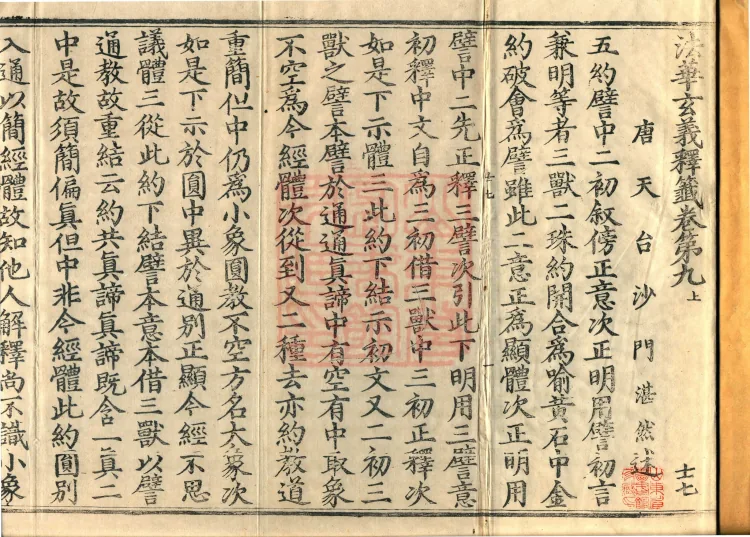 法華玄義釋籤卷第九上
唐天台沙門湛然述
十七
五約譬中二初敘傍正意次正明用譬初言
兼明等者三獸二珠約開合為喻黃石中金
約破會為譬雖此二意正為顯體次正明用
譬中二先正釋三譬次引此下明用三譬意
十七
初釋中文自為三初借三獸中三初正釋次
如是下示體三此約下結示初文又二初三
獸之譬本譬於通通真諦中有空有中取象
不空為今經體次從到又二種去亦約教道
重簡但中仍為小象圓教不空方名大象次
如是下示於圓中異於通別正顯今經不思
議體三從此約下結譬本意本借三獸以譬
通教故重結云約共真諦真諦既含一真二
中是故須簡偏真但中非今經體此約圓別
入通以簡經體故知他人解釋尚不識小象